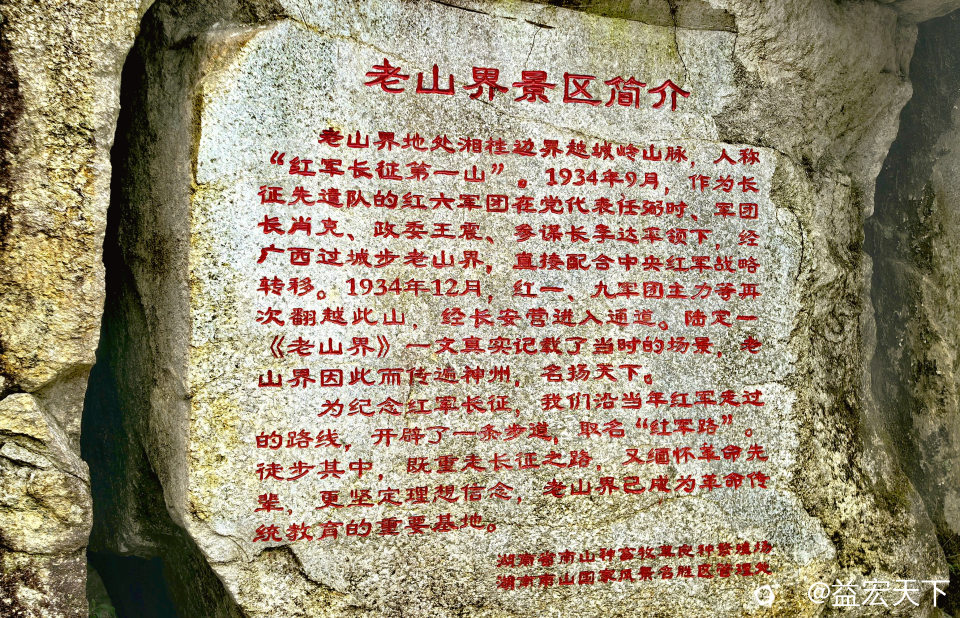 老山界景区简介
老山界地处湘桂边界越城岭山脉，人称
“红军长征第一山”。1934年9月，作为长
征先遣队的红六军团在党代表任弼时、军团
长肖克、政委王震、参谋长李达率领下，经
广西过城步老山界，直接配合中央红军战略
转移。1934年12月，红一、九军团主力等再
次翻越此山，经长安营进入通道。陆定一
《老山界》一文真实记载了当时的场景，老
山界因此而传遍神州，名扬天下。
为纪念红军长征，我们沿当年红军走过
的路线，开辟了一条步道，取名“红军路”。
徒步其中，既重走长征之路，又缅怀革命先
辈，更坚定理想信念，老山界已成为革命传
统教育的重要基地。
湖南省南山种畜牧草良种繁殖场
湖南南山国家风景名胜区管理处
@益宏天下